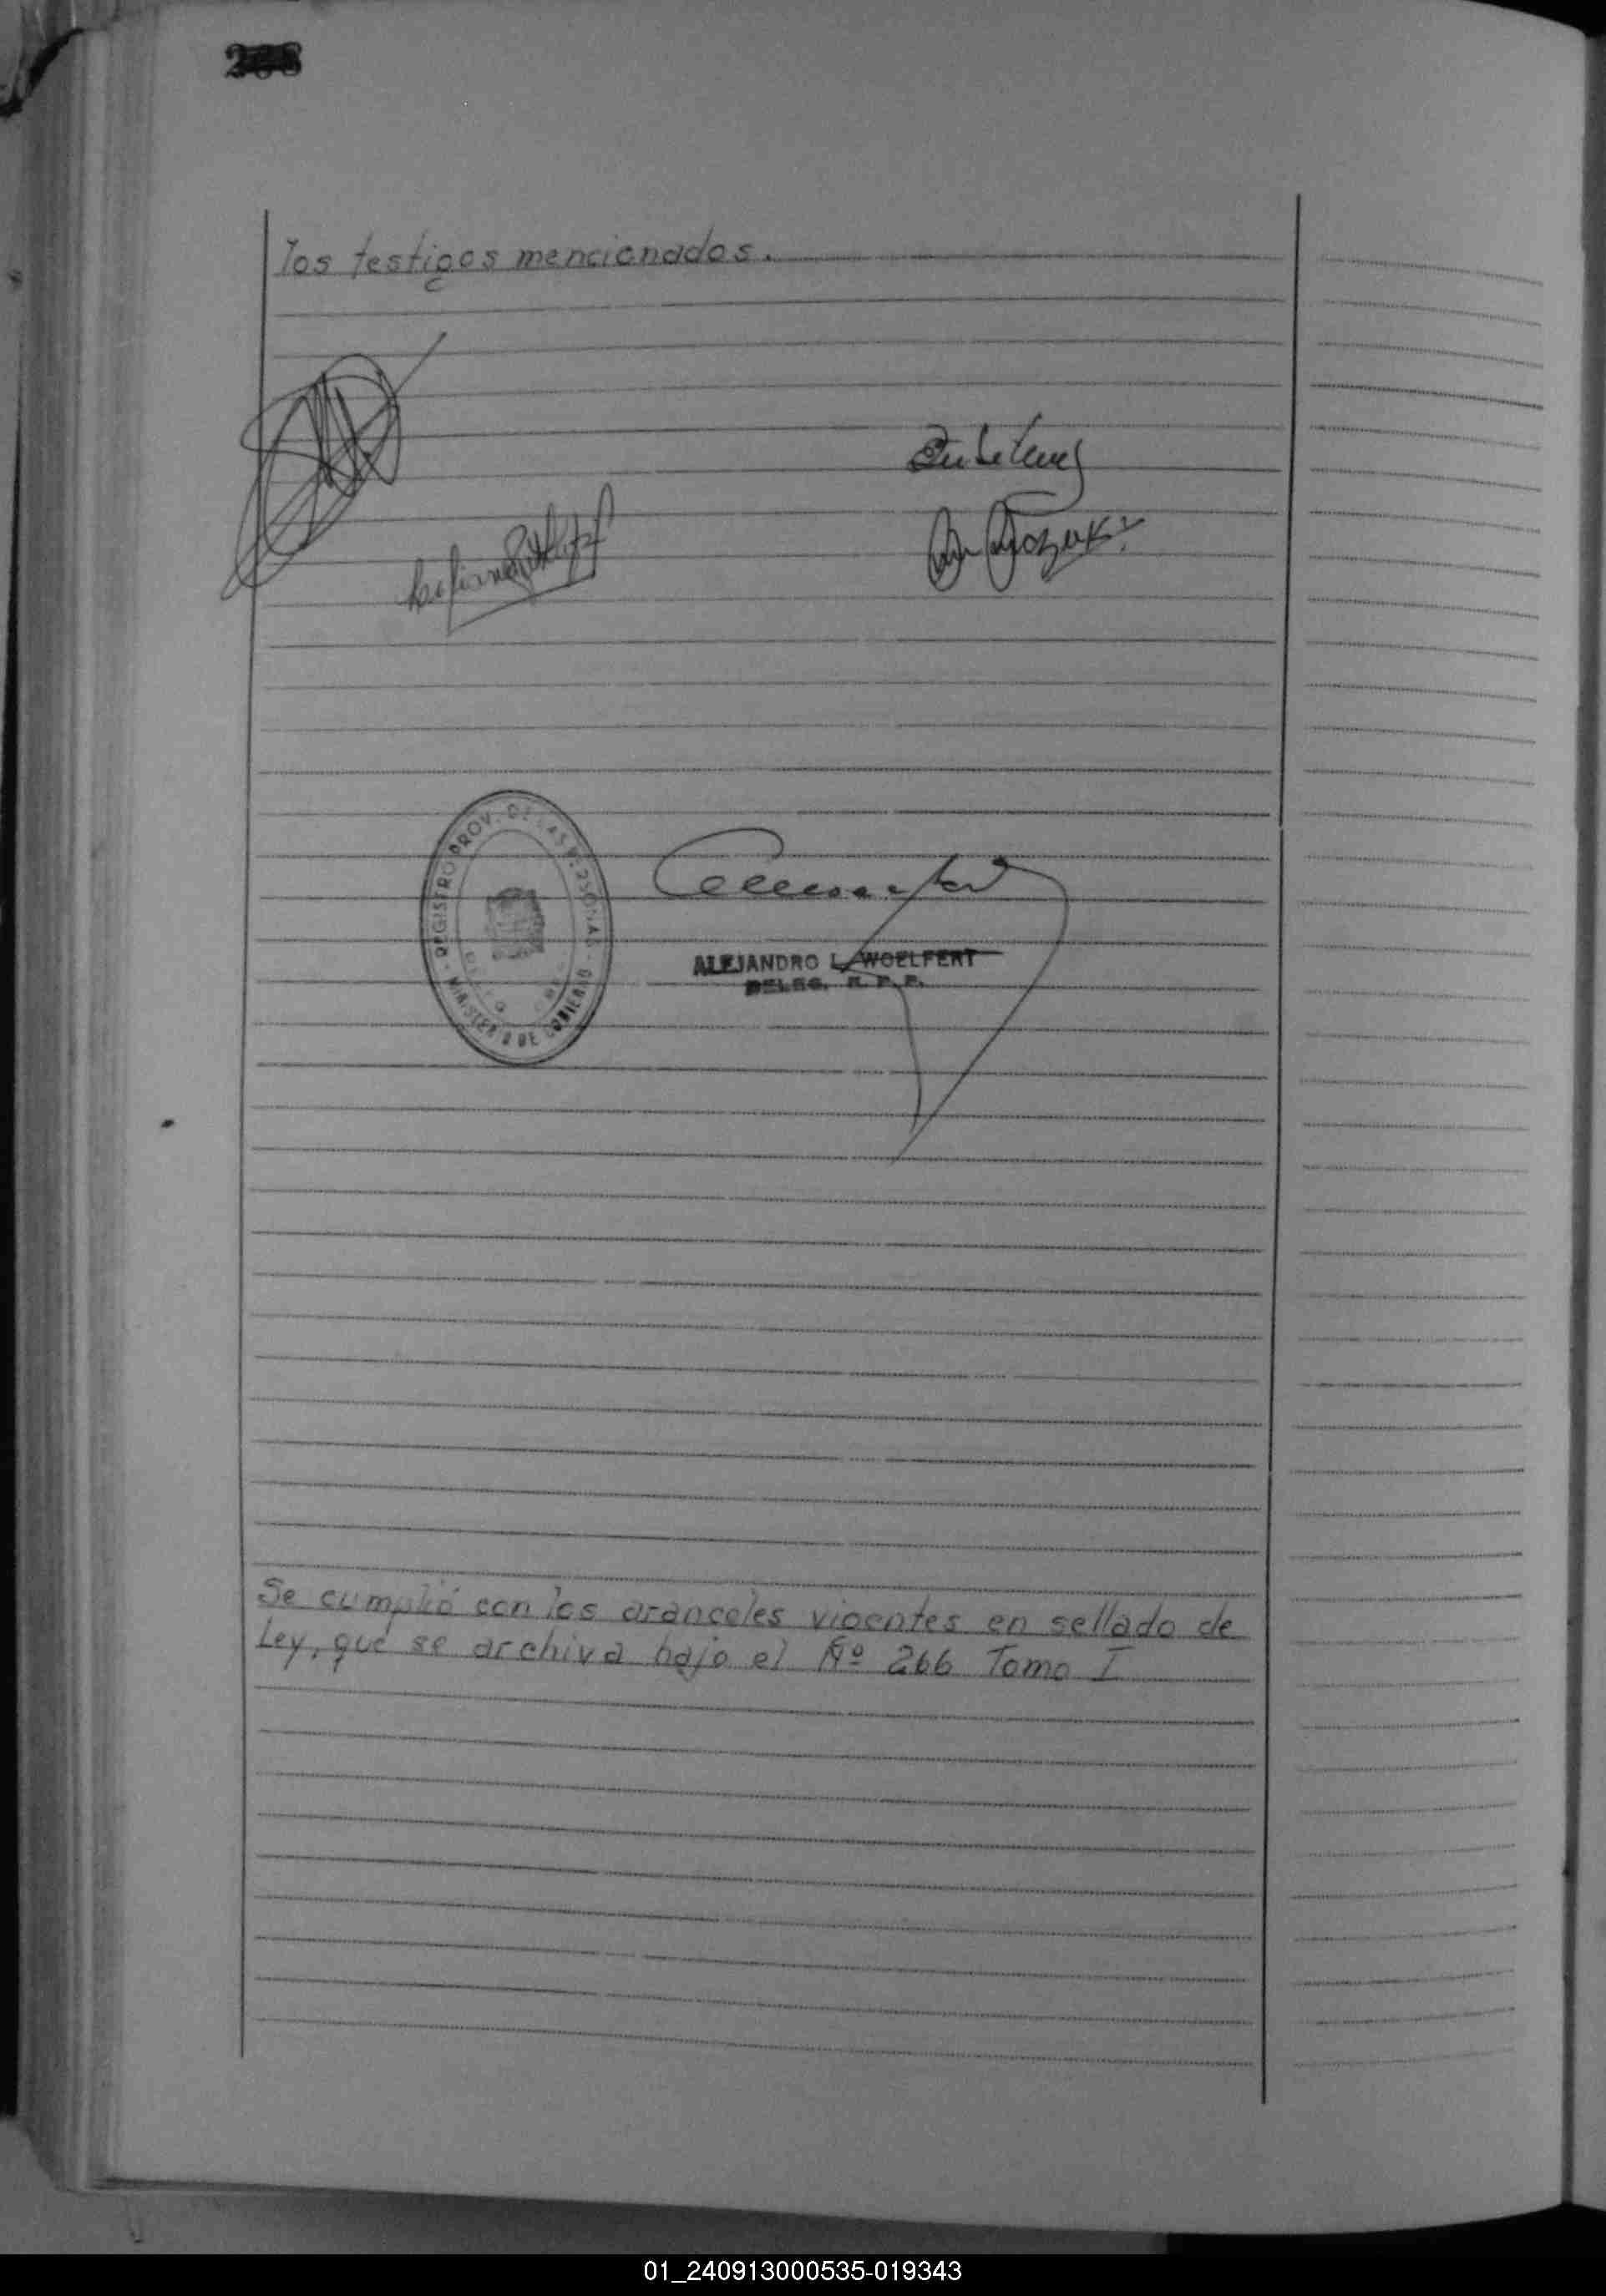 los testigos mencionados.
REGISTRO PROV. DE LAS PERSONAS
MINISTERIO DE GOBIERNO
ALEJANDRO L. WOELFERT
DELEG. R. P. P.
Se cumplió con los aranceles vigentes en sellado de
Ley, que se archiva bajo el Nº 266 Tomo I
01_240913000535-019343